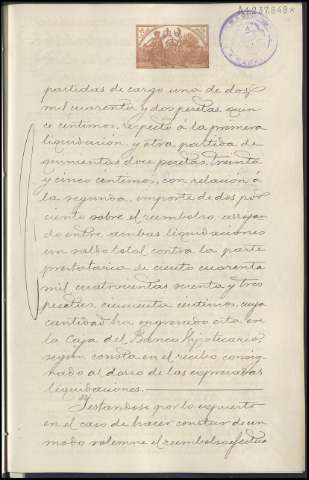 A1237,849*
partidas de cargo una de dos
mil cuarenta y dos pesetas, quin
ce céntimos, respecto á la primera
liquidación, y otra partida de
quinientas doce pesetas, treinta
y cinco céntimos, con relación á
la segunda, importe de dos por
ciento sobre el reembolso; arrojan
do entre ambas liquidaciones
un saldo total contra la parte
prestataria de ciento cuarenta
mil cuatrocientas setenta y tres
pesetas, cincuenta céntimos, cuya
cantidad ha ingresado esta en
la Caja del Banco Hipotecario,
según consta en el recibo consig
nado al dorso de las expresadas
liquidaciones.
Y estandose por lo expuesto
en el caso de hacer constar de un
modo solemne el reembolso efectua